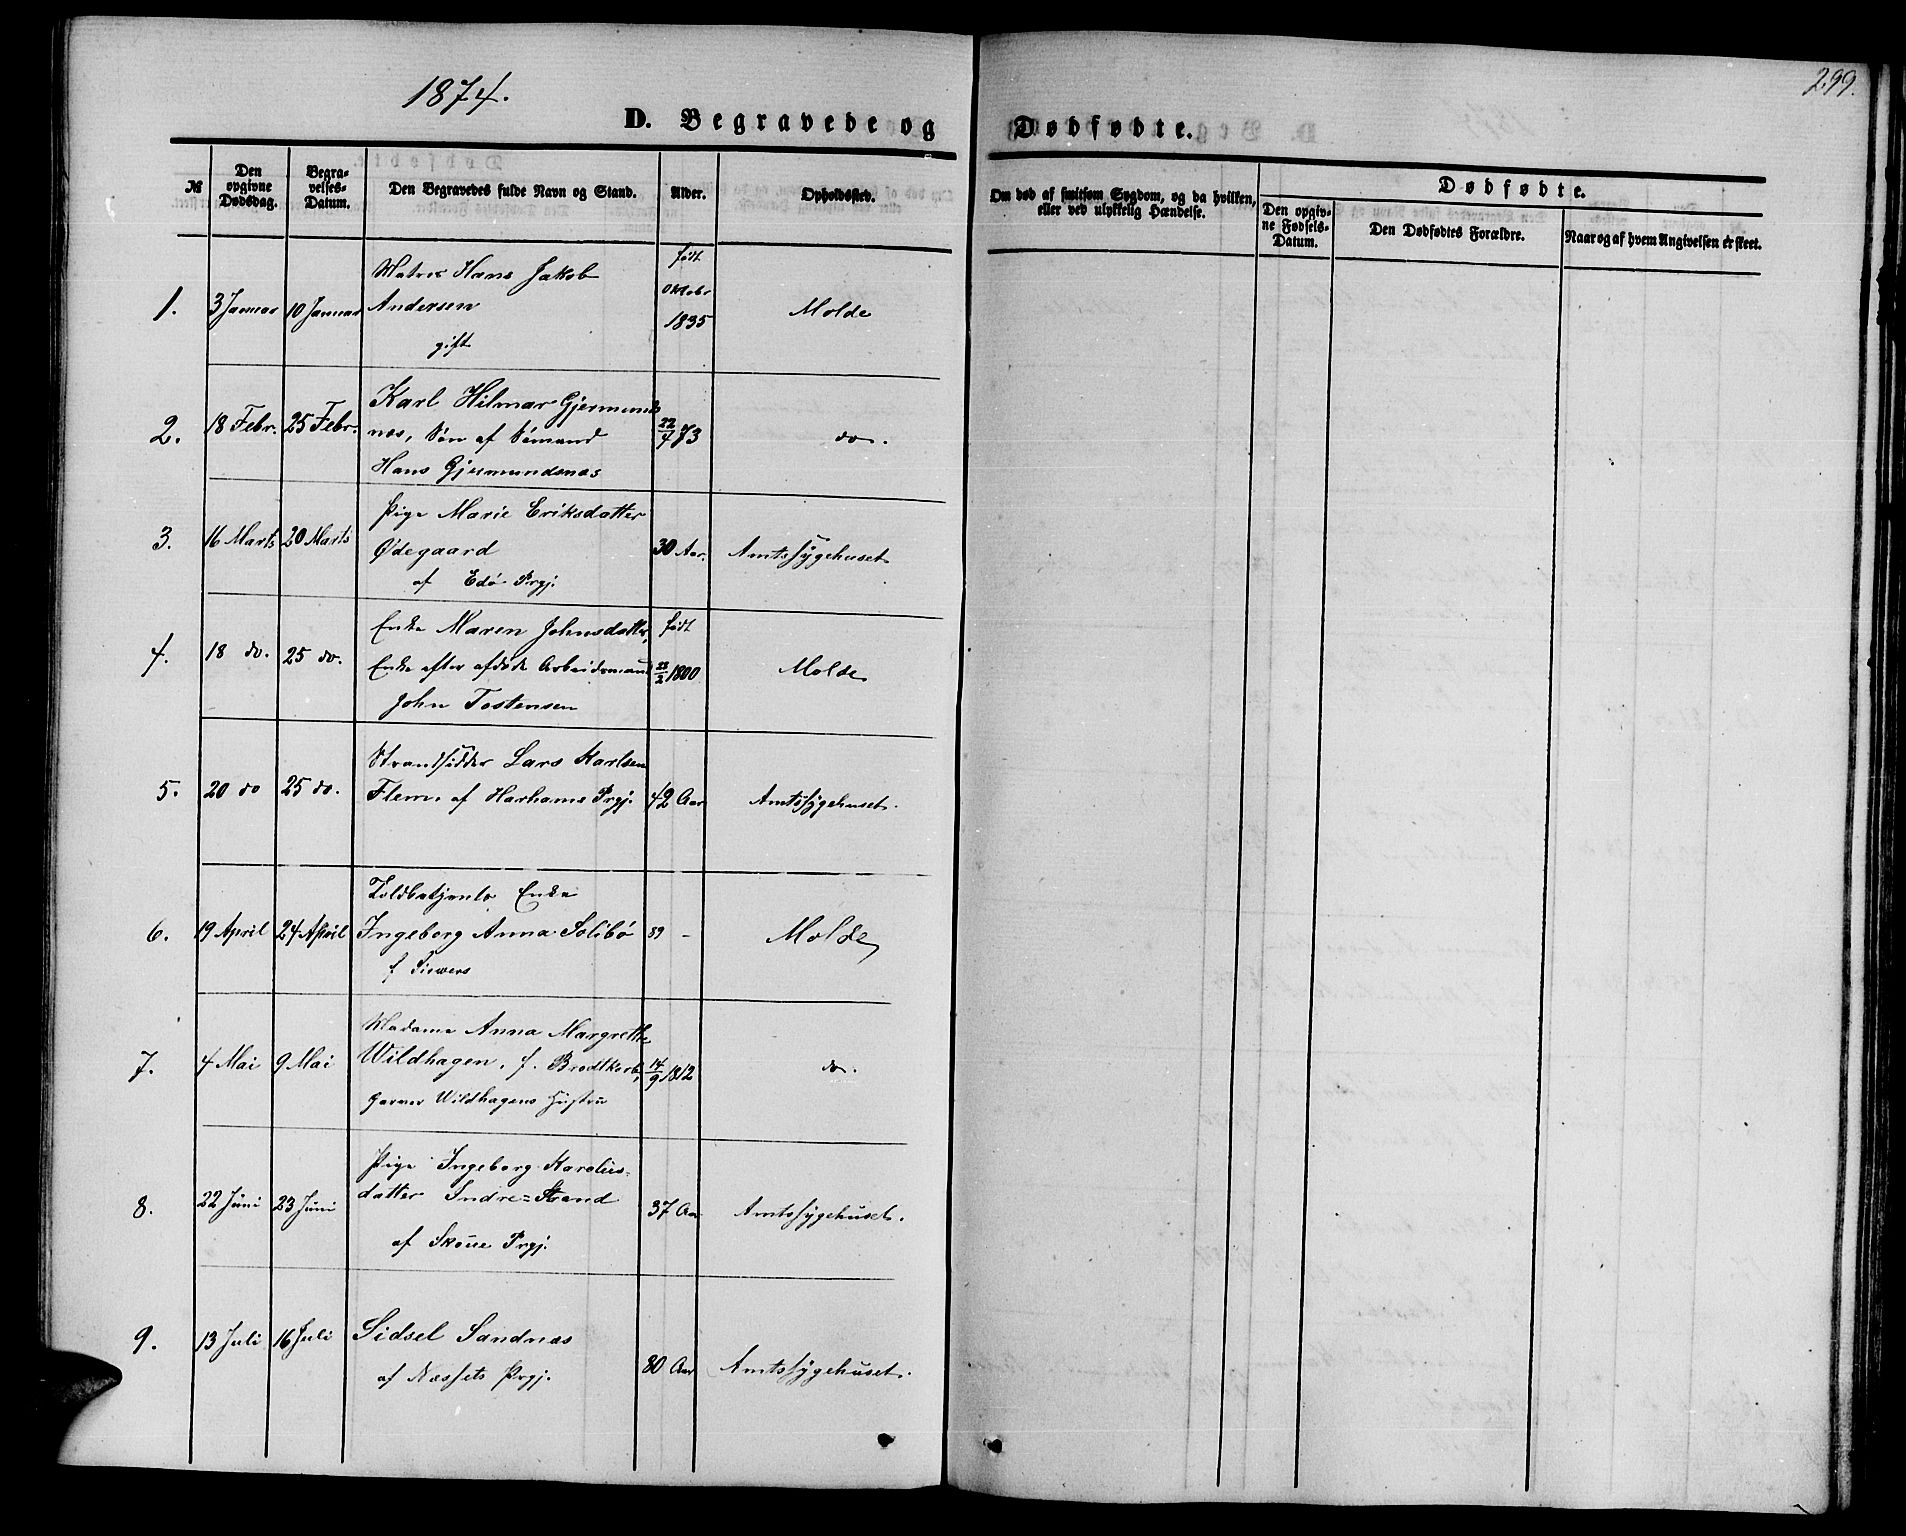 1874.
299.
D. Begravede og Dødfødte.
№
Den opgivne Dødsdag.
Begravelses-Datum.
Den Begravedes fulde Navn og Stand.
Alder.
Opholdssted.
Om død af smitsom Sygdom, og da hvilken, eller ved ulykkelig Hændelse.
Dødfødte.
Den opgivne Fødsels-Datum.
Den Dødfødtes Forældre.
Naar og af hvem Angivelsen er skeet.
1. 3 Januar 10 Januar
Matros Hans Jakob
Andersen
gift
født
Oktobr
1835
Molde
2. 18 Febr. 25 Febr.
Karl Hilmar Gjermunds
næs, Søn af Sømand
Hans Gjermundsnæs
22/4 73
do.
3. 16 Marts 20 Marts
Pige Marie Eriksdatter
Ødegaard
af Edø Prgj.
30 Aar.
Amtssygehuset
4. 18 do. 25 do.
Enke Maren Johnsdatter,
Enke efter afdøde Arbeidsmand
John Tostensen
født
22/2 1800
Molde
5. 20 do 25 do.
Strandsidder Lars Karlsen
Flem, af Harhams Prgj.
42 Aar
Amtssygehuset.
6. 19 April 24 April
Toldbetjents Enke
Ingeborg Anna Solibø
f. Siewers
89 -
Molde
7. 4 Mai 9 Mai
Madame Anna Margrethe
Wildhagen, f. Brodtkorb,
Garver Wildhagens Hustru
14/9 1812
do.
8. 22 Juni 23 Juni
Pige Ingeborg Karolius-
datter Indre=Strand
af Skoue Prgj.
37 Aar
Amtssygehuset.
9. 13 Juli 16 Juli
Sidsel Sandnæs
af Næssets Prgj.
80 Aar
Amtssygehuset.